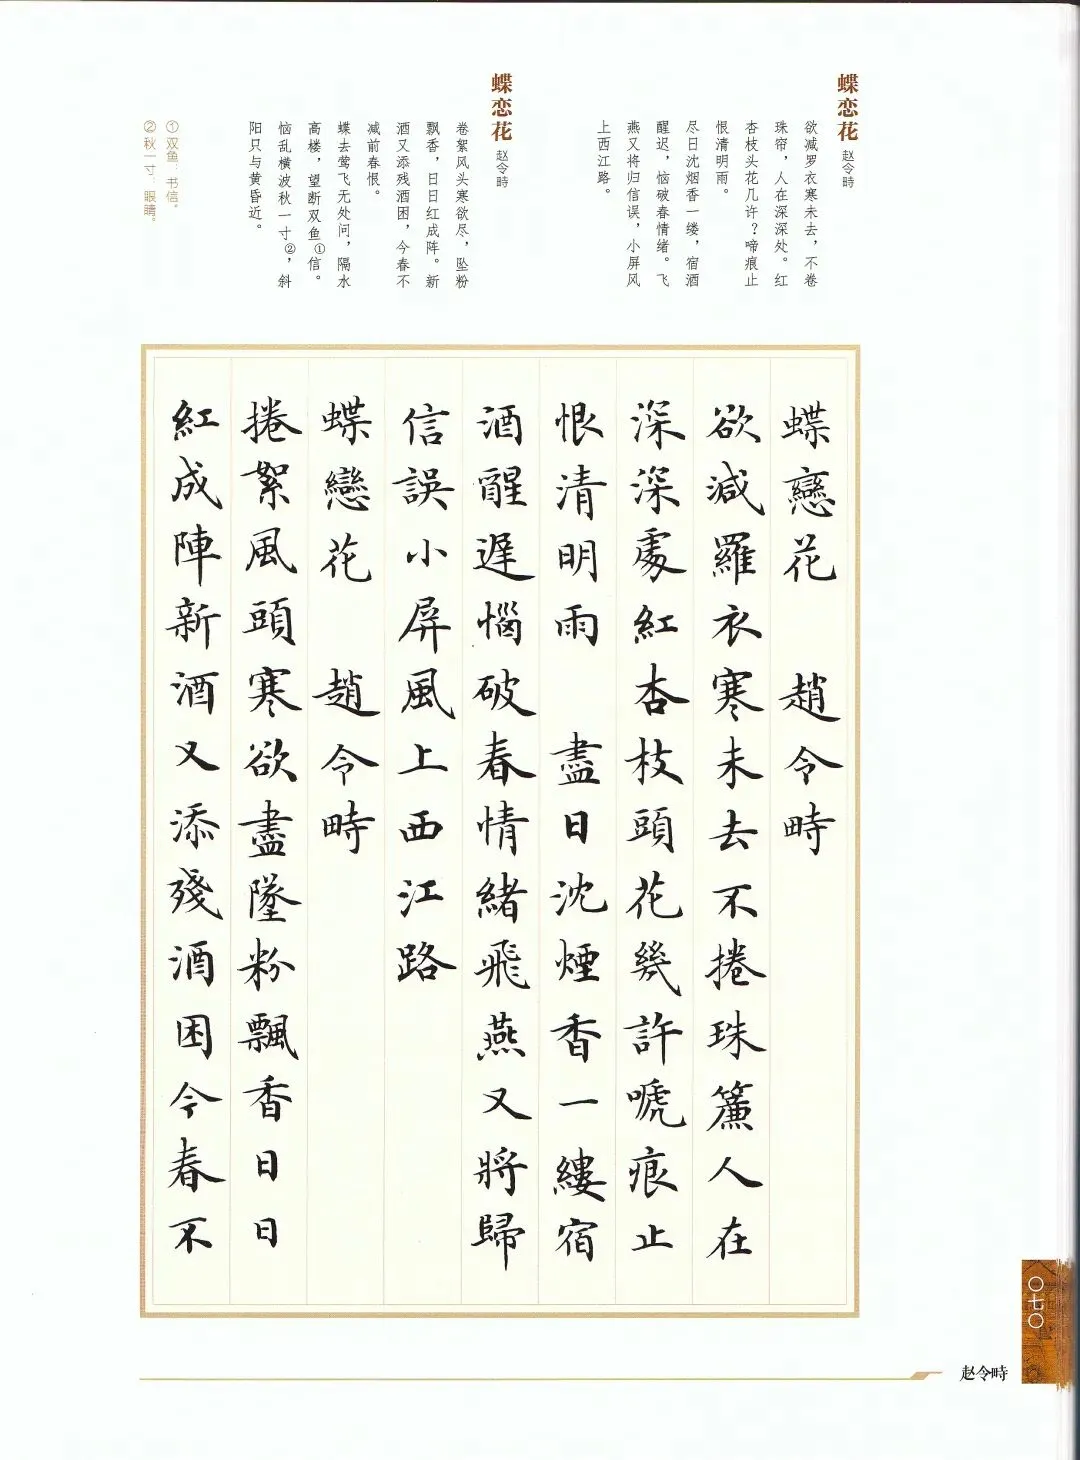 蝶恋花 赵令畤
欲减罗衣寒未去，不卷
珠帘，人在深深处。红
杏枝头花几许？啼痕止
恨清明雨。
尽日沈烟香一缕，宿酒
醒迟，恼破春情绪。飞
燕又将归信误，小屏风
上西江路。
蝶恋花 赵令畤
卷絮风头寒欲尽，坠粉
飘香，日日红成阵。新
酒又添残酒困，今春不
减前春恨。
蝶去莺飞无处问，隔水
高楼，望断双鱼①信。
恼乱横波秋一寸②，斜
阳只与黄昏近。
①双鱼：书信。
②秋一寸：眼睛。
蝶戀花 趙令畤
欲減羅衣寒未去不捲珠簾人在
深深處紅杏枝頭花幾許嗁痕止
恨清明雨 盡日沈煙香一縷宿
酒醒遲惱破春情緒飛燕又將歸
信誤小屏風上西江路
蝶戀花 趙令畤
捲絮風頭寒欲盡墜粉飄香日日
紅成陣新酒又添殘酒困今春不
〇七〇
赵令畤